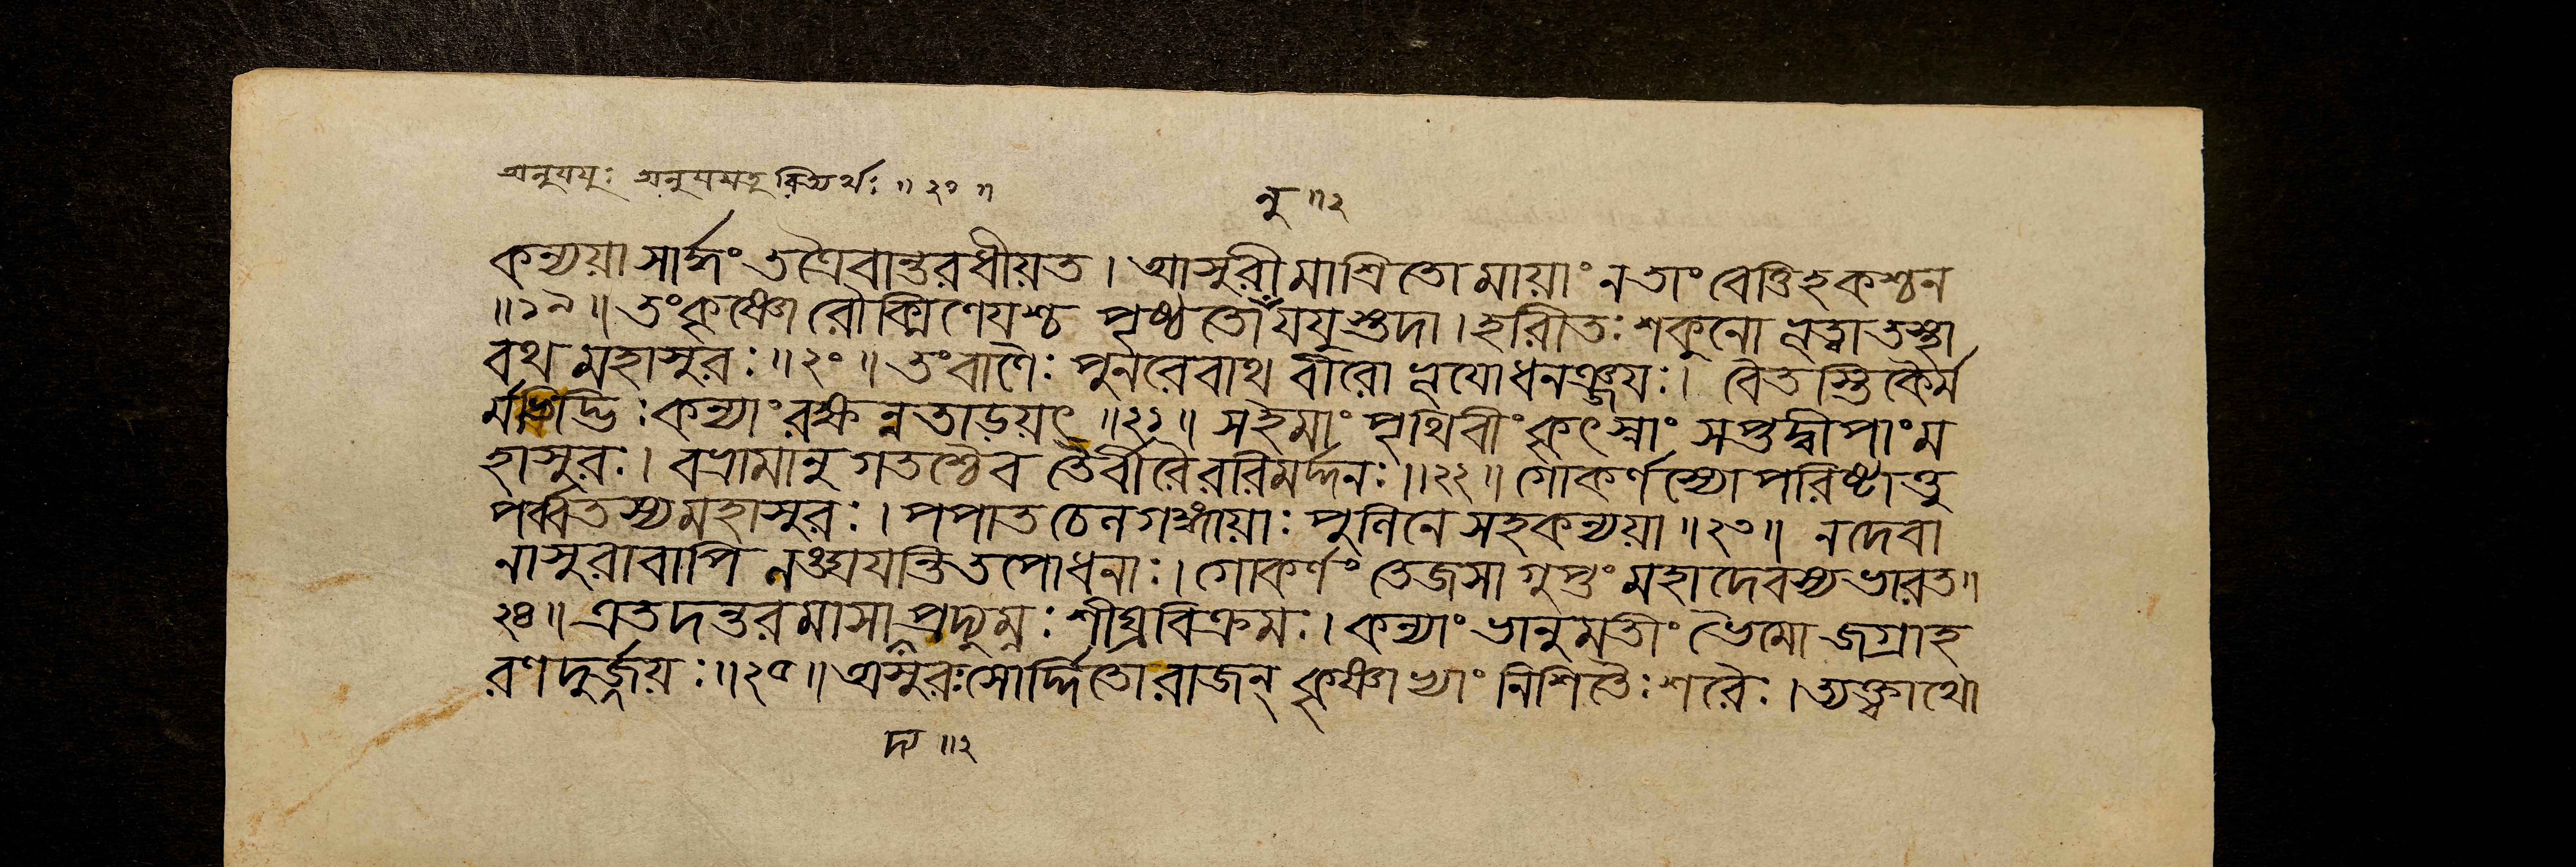 অনুযযুঃ অনুযযতুরিত্যর্থঃ॥২০॥
নু॥২
কন্যয়া সার্দ্ধং তত্রৈবান্তরধীয়ত। আসুরীমাশ্রিতো মায়াং ন তাং বেত্তি হ কশ্চন
॥১৯॥ তং কৃষ্ণো রৌক্মিণেয়শ্চ পৃষ্ঠতো যযুস্তদা। হরিতঃ শকুনো নৃত্বা তস্থা
বথ মহাসুরঃ॥২০॥ তং বাণৈঃ পুনরেবাথ বীরো নৃযো ধনঞ্জয়ঃ। বৈতস্তিকৈর্ম
র্মভিদ্ভিঃ কন্যাং রক্ষন্নতাড়য়ৎ॥২১॥ স হমাং পৃথিবীং কৃৎস্নাং সপ্তদ্বীপাং ম
হাসুরঃ। বভ্রামানুগতশ্চৈব তৈর্বীরৈররিমর্দ্দনঃ॥২২॥ গোকর্ণস্যোপরিষ্টাত্তু
পর্ব্বতস্য মহাসুরঃ। পপাত চৈন গঙ্গায়াঃ পুলিনে সহ কন্যয়া॥২৩॥ ন দেবা
নাসুরা বাপি লঙ্ঘয়ন্তি তপোধনাঃ। গোকর্ণং তেজসা গুপ্তং মহাদেবস্য ভারত॥
২৪॥ এতদন্তরমাসা প্রদ্যুম্নঃ শীঘ্রবিক্রমঃ। কন্যাং ভানুমতীং ভৈমো জগ্রাহ
রণদুর্জ্জয়ঃ॥২৫॥ অসুরঃ সোর্দ্দিতো রাজন্ কৃষ্ণাখ্যাং নিশিতৈঃ শরৈঃ। ত্যক্ত্বাথো
দ্য॥২